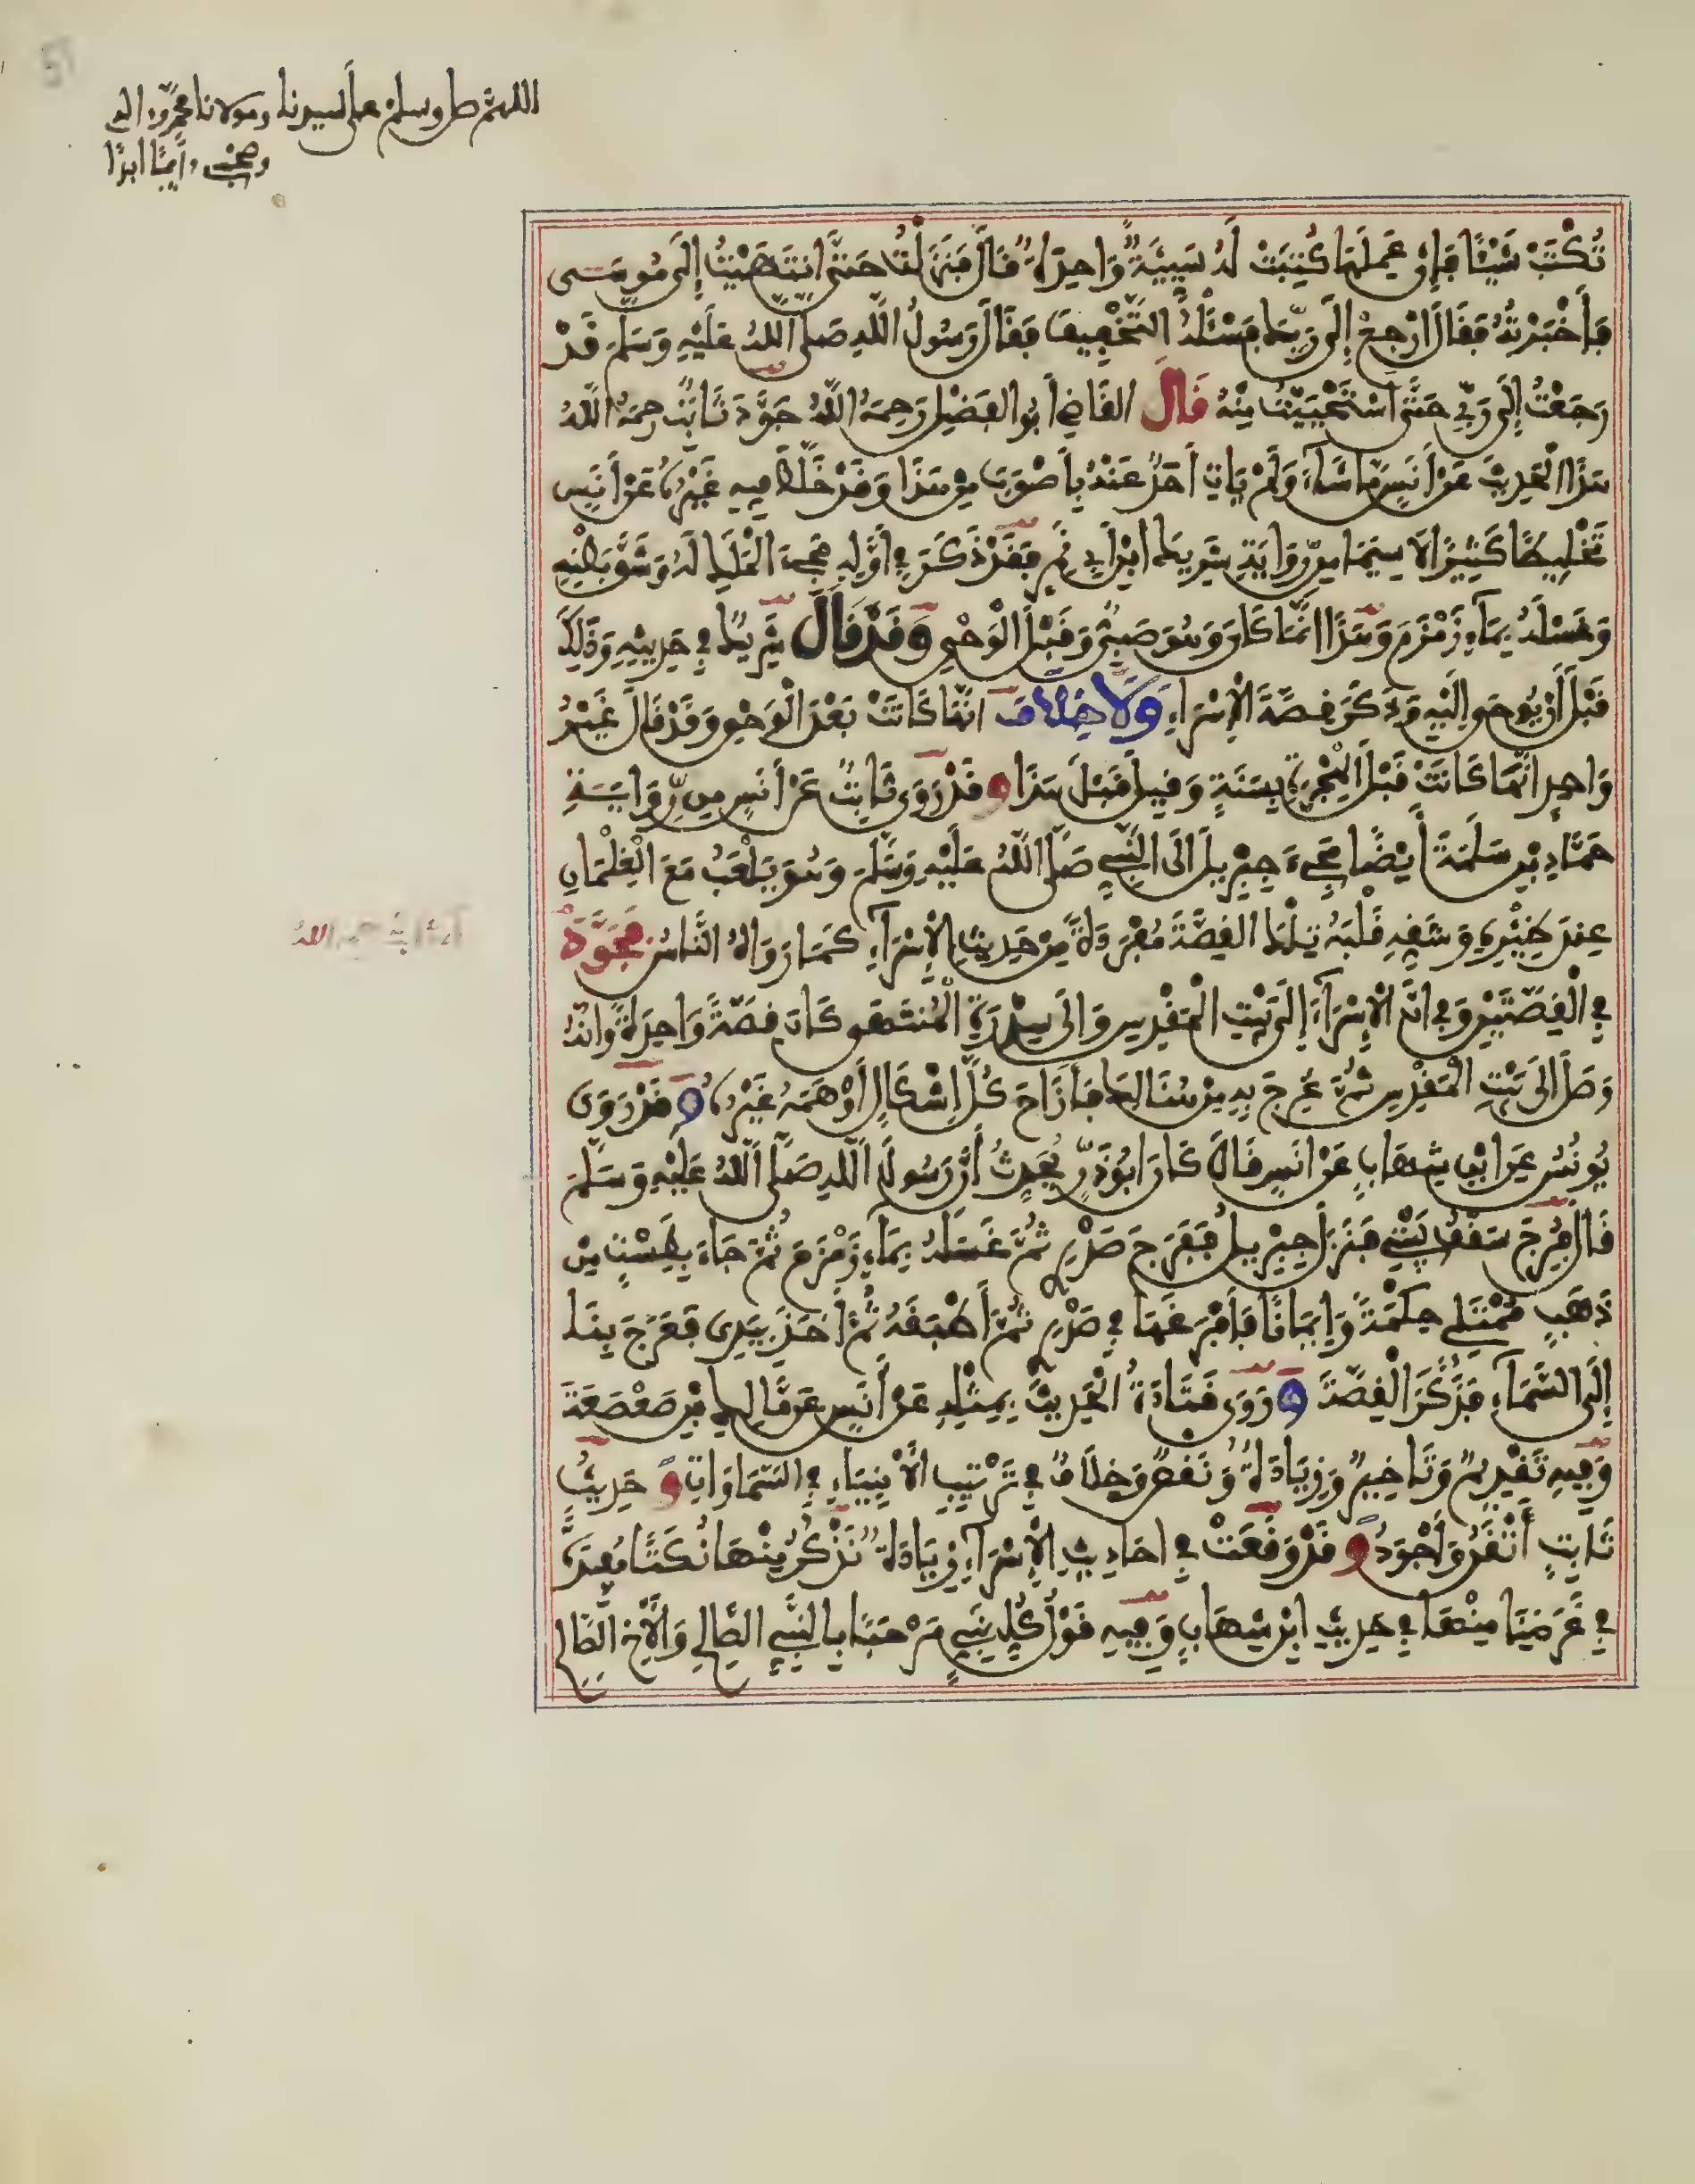 اللهم صل وسلم على سيدنا ومولانا محمد وءاله
وصحبه دائما ابدًا
تُكْتَبْ شَيْئًا فَإِنْ عَمِلَهَا كُتِبَتْ لَهُ سَيِّئَةً وَاحِدَةً قَالَ فَنَزَلْتُ حَتَّى انْتَهَيْتُ إِلَى مُوسَى
فَأَخْبَرْتُهُ فَقَالَ ارْجِعْ إِلَى رَبِّكَ فَسْئَلْهُ التَّخْفِيفَ فَقَالَ رَسُولُ اللَّهِ صَلَّى اللَّهُ عَلَيْهِ وَسَلَّمَ قَدْ
رَجَعْتُ إِلَى رَبِّي حَتَّى اسْتَحْيَيْتُ مِنْهُ قَالَ القَاضِي أبو الفَضْلِ رَحِمَهُ اللَّهُ جَوَّدَ ثَابِتٌ رحِمَهُ اللَّهُ
هَذَا الْحَدِيثَ عَنْ أَنَسٍ مَا شَاءَ وَلَمْ يَاتِ أَحَدٌ عَنْهُ بِأَصْوَبَ مِنْ هَذَا وَقَدْ خَلَّطَ فِيهِ غَيْرُهُ عَنْ أَنَسٍ
تَخْلِيطًا كَثِيرًا لَا سِيَّمَا مِن رِّوَايَةِ شَرِيكِ ابْنِ أَبِي نَمِرٍ فَقَدْ ذَكَرَ فِي أَوَّلِهِ مَجِيءَ الْمَلَكِ لَهُ وَشَقَّ بَطْنِهِ
وَغَسْلَهُ بِمَاءِ زَمْزَمَ وَهَذَا انَّمَا كَانَ وَهُوَ صَبِيٌّ وَقَبْلَ الْوَحْيِ وَقَدْ قَالَ شَرِيكٌ فِي حَدِيثِهِ وَذَلِكَ
قَبْلَ أَنْ يُوحَى إِلَيْهِ وَذَكَرَ قِصَّةَ الْإِسْرَاءِ وَلَا خِلَافَ انَّهَا كَانَتْ بَعْدَ الْوَحْيِ وَقَدْ قَالَ غَيْرُ
وَاحِدٍ انَّهَا كَانَتْ قَبْلَ الْهِجْرَةِ بِسَنَةٍ وَقِيلَ قَبْلَ هَذَا وَقَدْ رَوَى ثَابِتٌ عَنْ أَنَسٍ مِن رِّوَايَةِ
حَمَّادِ بْنِ سَلَمَةَ أَيْضًا مَجِيءَ جِبْرِيلَ الَى النَّبِيِّ صَلَّى اللَّهُ عَلَيْهِ وَسَلَّمَ وَهُوَ يَلْعَبُ مَعَ الْغِلْمَانِ
عِنْدَ ظِئْرِهِ وَشَقِّهِ قَلْبَهُ تِلْكَ الْقِصَّةَ مُفْرَدَةً مِنْ حَدِيثِ الْإِسْرَاءِ كَمَا رَوَاهُ النَّاسُ فَجَوَّدَ
فِي الْقِصَّتَيْنِ وَفِي انَّ الْإِسْرَاءَ إِلَى بَيْتِ الْمَقْدِسِ وَالَى سِدْرَةِ الْمُنْتَهَى كَانَ قِصَّةً وَاحِدَةً وَانَّهُ
وَصَلَ الَى بَيْتِ الْمَقْدِسِ ثُمَّ عُرِجَ بِهِ مِنْ هُنَالِكَ فَأَزَاحَ كُلَّ إِشْكَالٍ أَوْهَمَهُ غَيْرُهُ وَقَدْ رَوَى
يُونُسُ عَنِ ابْنِ شِهَابٍ عَنْ أَنَسٍ قَالَ كَانَ ابُو ذَرٍّ يُحَدِّثُ أَنَّ رَسُولَ اللَّهِ صَلَّى اللَّهُ عَلَيْهِ وَسَلَّمَ
قَالَ فُرِجَ سَقْفُ بَيْتِي فَنَزَلَ جِبْرِيلُ فَفَرَجَ صَدْرِي ثُمَّ غَسَلَهُ بِمَاءِ زَمْزَمَ ثُمَّ جَاءَ بِطَسْتٍ مِنْ
ذَهَبٍ مُمْتَلِئٍ حِكْمَةً وَإِيمَانًا فَأَفْرَغَهَا فِي صَدْرِي ثُمَّ أَطْبَقَهُ ثُمَّ أَخَذَ بِيَدِي فَعَرَجَ بِنَا
إِلَى السَّمَاءِ فَذَكَرَ الْقِصَّةَ وَرَوَى قَتَادَةُ الْحَدِيثَ بِمِثْلِهِ عَنْ أَنَسٍ عَن مَّالِكِ بْنِ صَعْصَعَةَ
وَفِيهِ تَقْدِيمٌ وَتَاخِيرٌ وَزِيَادَةٌ وَنَقْصٌ وَخِلَافٌ فِي تَرْتِيبِ الْأَنْبِيَاءِ فِي السَّمَاوَاتِ وَحَدِيثُ
ثَابِتٍ أَتْقَنُ وَأَجْوَدُ وَقَدْ وَقَعَتْ فِي أحَادِيثِ الْإِسْرَاءِ زِيَادَةٌ نَذْكُرُ مِنْهَا نُكَتًا مُفِيدَةً
فِي غَرَضِنَا مِنْهَا فِي حَدِيثِ ابْنِ شِهَابٍ وَفِيهِ قَوْلُ كُلِّ نَبِيٍّ مَرْحَبًا بِالنَّبِيِّ الصَّالِحِ وَالْأَخِ الصَّالِحِ